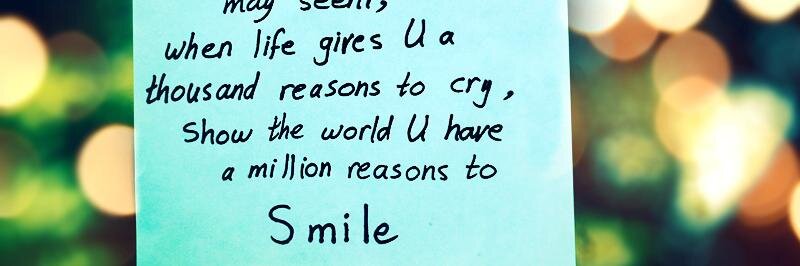 may seem,
when life gives U a
thousand reasons to cry,
Show the world U have
a million reasons to
Smile